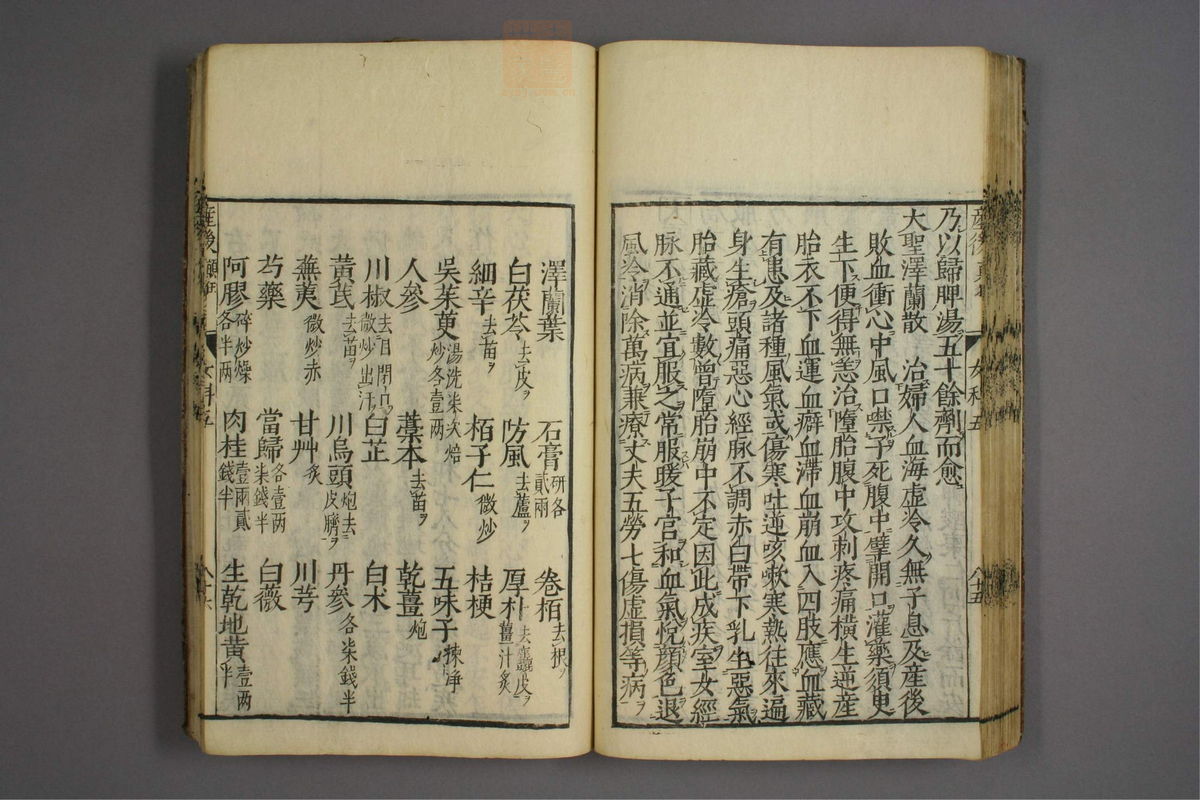 乃以歸脾湯五十餘劑而愈
大聖澤蘭散 治婦人血海虛冷久無子息及產後
敗血衝心中風口噤子死腹中擘開口灌藥須臾
生下便得無恙治墮胎腹中攻刺疼痛橫生逆産
胎衣不下血運血癖血滯血崩血入四肢應血藏
有患及諸種風氣或傷寒吐逆咳嗽寒熱往來遍
身生瘡頭痛惡心經脉不調赤白帶下乳生惡氣
胎藏虛冷數曾墮胎崩中不定因此成疾室女經
脉不通並宜服之常服暖子宮和血氣悅顏色退
風冷消除萬病兼療丈夫五勞七傷虛損等病
產後 女科五 八十五
澤蘭葉 石膏研各貳兩 卷栢去根
白茯苓去皮 防風去蘆 厚朴去麤皮薑汁炙
細辛去苗 栢子仁微炒 桔梗
吳茱萸湯洗柒次焙炒各壹兩 五味子揀净
人參 藁本去苗 乾薑炮
川椒去目閉口微炒出汗 白芷 白术
黃芪去苗 川烏頭炮去皮臍 丹參各柒錢半
蕪荑微炒赤 甘艸炙 川芎
芍藥 當歸各壹兩柒錢半 白薇
阿膠碎炒燥各半兩 肉桂壹兩貳錢半 生乾地黃壹兩半
產後 女科五